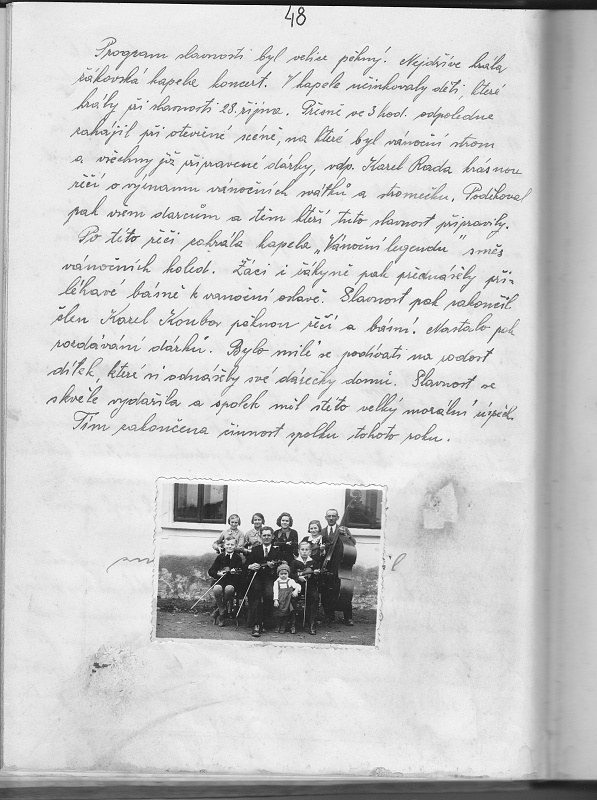 48
Program slavnosti byl velice pěkný. Nejdříve hrála
žákovská kapela koncert. V kapele účinkovaly děti, které
hrály při slavnosti 28. října. Přesně ve 3 hod. odpoledne
zahájil při otevřené scéně, na které byl vánoční strom
a všechny již připravené dárky, vdp. Karel Rada krásnou
řečí o významu vánočních svátků a stromečku. Poděkoval
pak všem dárcům a těm kteří tuto slavnost připravily.
Po této řeči zahrála kapela „Vánoční legendu" směs
vánočních koled. Žáci i žákyně pak přednášely při-
léhavé básně k vánoční oslavě. Slavnost pak zakončil
člen Karel Koubov pěknou řečí a básní. Nastalo pak
rozdávání dárků. Bylo milé se podívati na radost
dítek, které si odnášely své dárečky domů. Slavnost se
skvěle vydařila a spolek měl z této velký morální úspěch.
Tím zakončena činnost spolku tohoto roku.